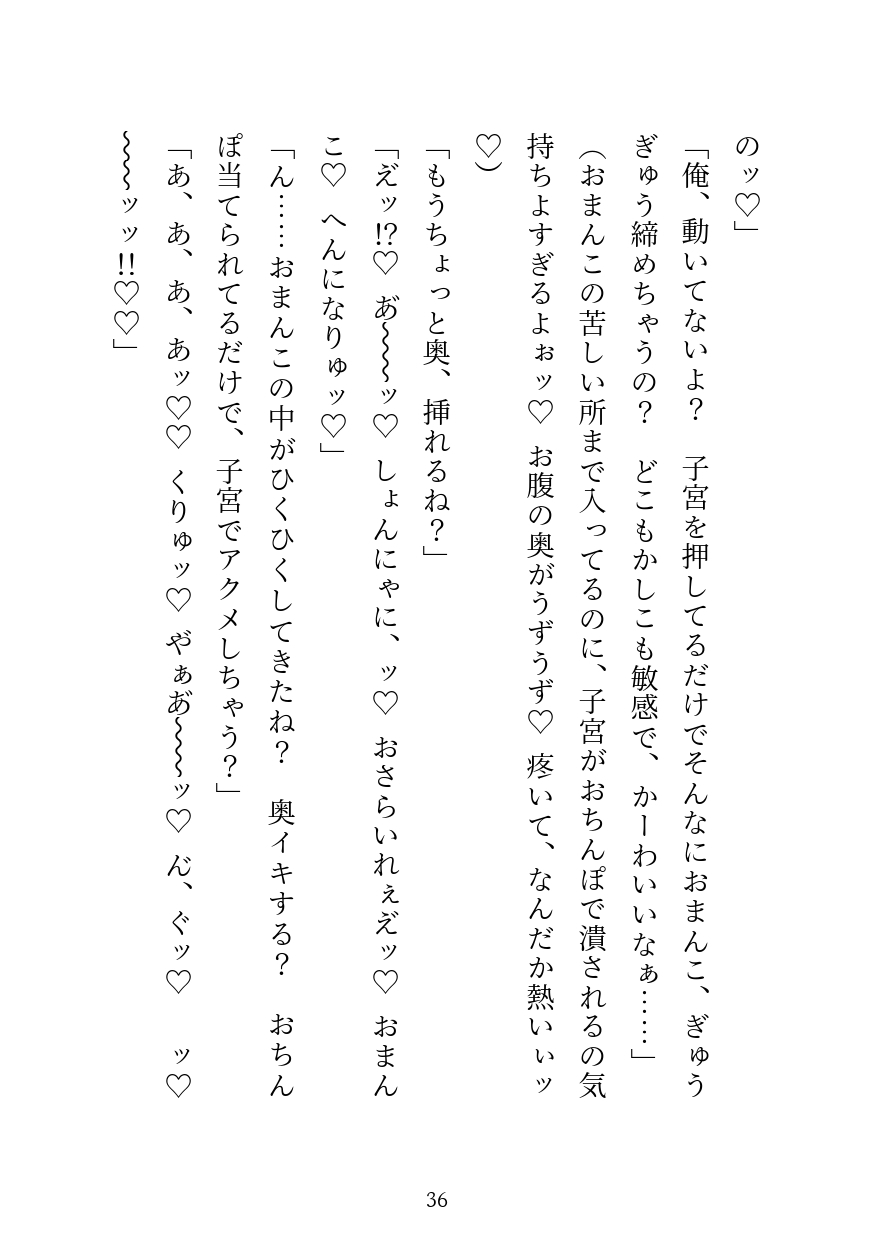 のッ♡」
「俺、動いてないよ？　子宮を押してるだけでそんなにおまんこ、ぎゅう
ぎゅう締めちゃうの？　どこもかしこも敏感で、かーわいいなぁ……」
（おまんこの苦しい所まで入ってるのに、子宮がおちんぽで潰されるの気
持ちよすぎるよぉッ♡ お腹の奥がうずうず♡ 疼いて、なんだか熱いぃッ
♡）
「もうちょっと奥、挿れるね？」
「え゛ッ!?♡ あ゛〜〜〜ッ♡ しょんにゃに、ッ♡ おさらいれぇえ゛ッ♡ おまん
こ♡ へんになりゅッ♡」
「ん……おまんこの中がひくひくしてきたね？　奥イキする？　おちん
ぽ当てられてるだけで、子宮でアクメしちゃう？」
「あ、あ、あ、あッ♡♡ くりゅッ♡ や゛ぁあ゛〜〜〜ッ♡ ん゛、ぐッ♡　ッ♡
〜〜〜ッッ!!♡♡」
36